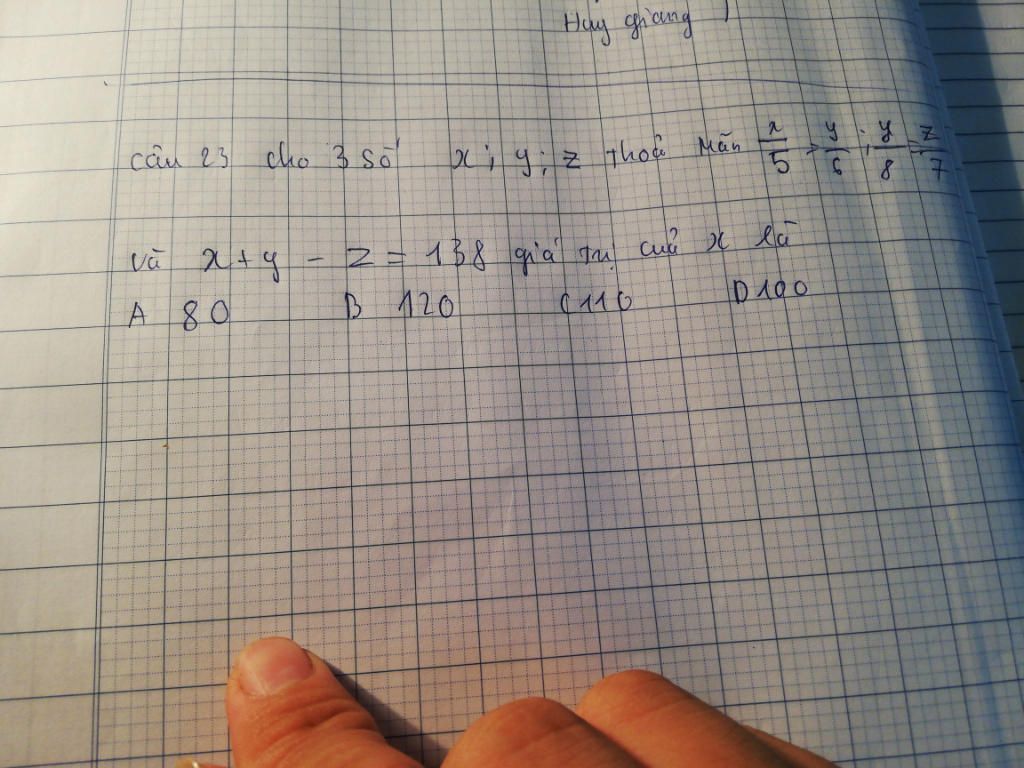 Huy giang
câu 23 cho 3 số x; y; z thoả mãn x/5 = y/6; y/8 = z/7
và x + y - z = 138 giá trị của x là
A 80 B 120 C 110 D 100